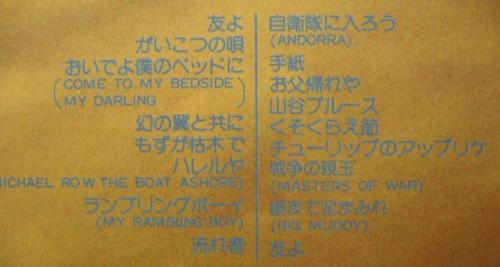 友よ
がいこつの唄
おいでよ僕のベッドに
(COME TO MY BEDSIDE
MY DARLING)
幻の翼と共に
もずが枯木で
ハレルヤ
MICHAEL ROW THE BOAT ASHORE)
ランブリングボーイ
(MY RAMBLING BOY)
流れ者
自衛隊に入ろう
(ANDORRA)
手紙
お父帰れや
山谷ブルース
くそくらえ節
チューリップのアップリケ
戦争の親玉
(MASTERS OF WAR)
腰まで泥まみれ
(BIG MUDDY)
友よ